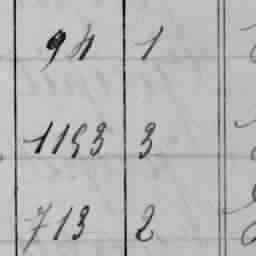 94 1
1153 3
713 2